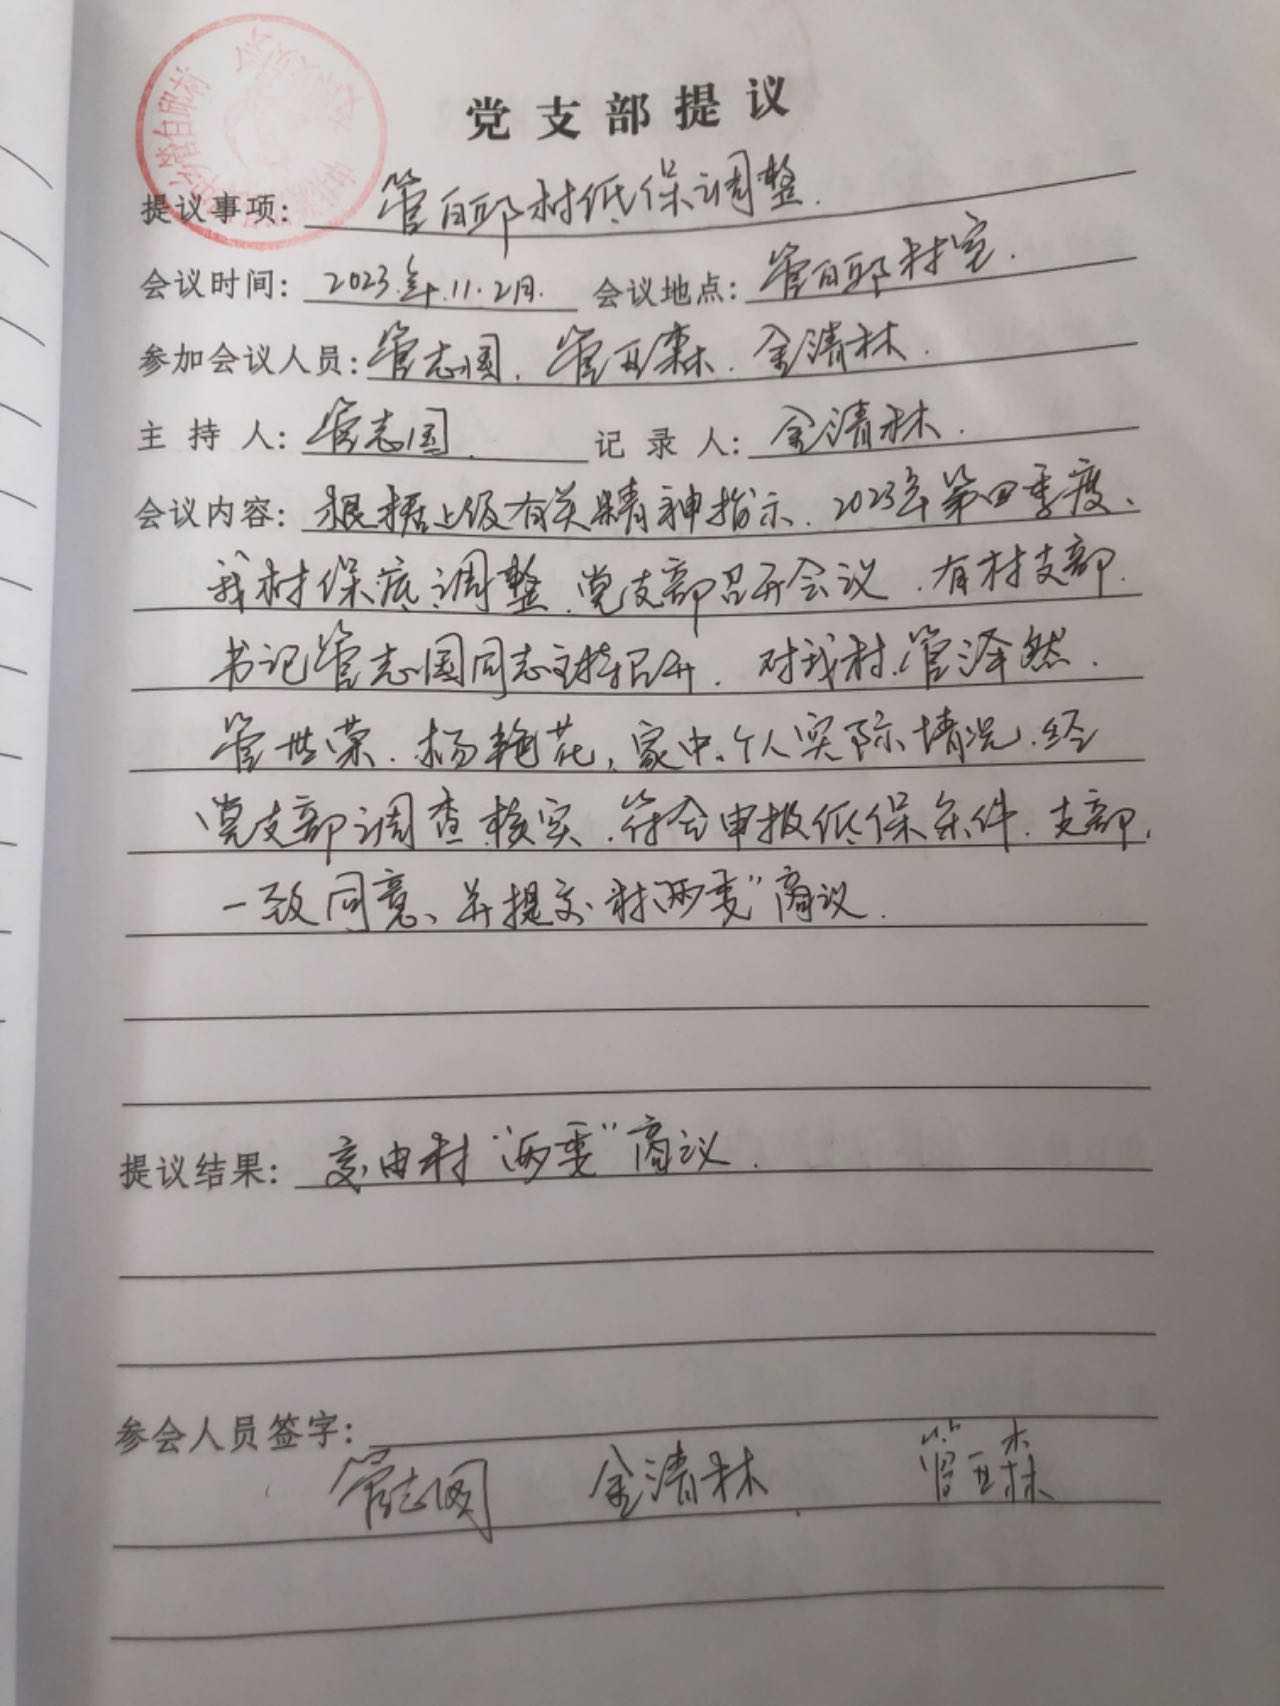 党支部提议
提议事项: 管白邱村低保调整.
会议时间: 2023.年.11.2月. 会议地点: 管白邱村室.
参加会议人员: 管志国. 管亚森. 金清林.
主持人: 管志国. 记录人: 金清林.
会议内容: 根据上级有关精神指示. 2023年第四季度、
我村保底调整.党支部召开会议.有村支部.
书记管志国同志主持召开. 对我村.管泽然.
管世荣.杨艳花,家中.个人实际情况.经
党支部调查.核实.符合申报低保条件.支部.
一致同意、并提交.村“两委”商议.
提议结果: 交.由村“两委”商议.
参会人员签字:
管志国 金清林 管亚森